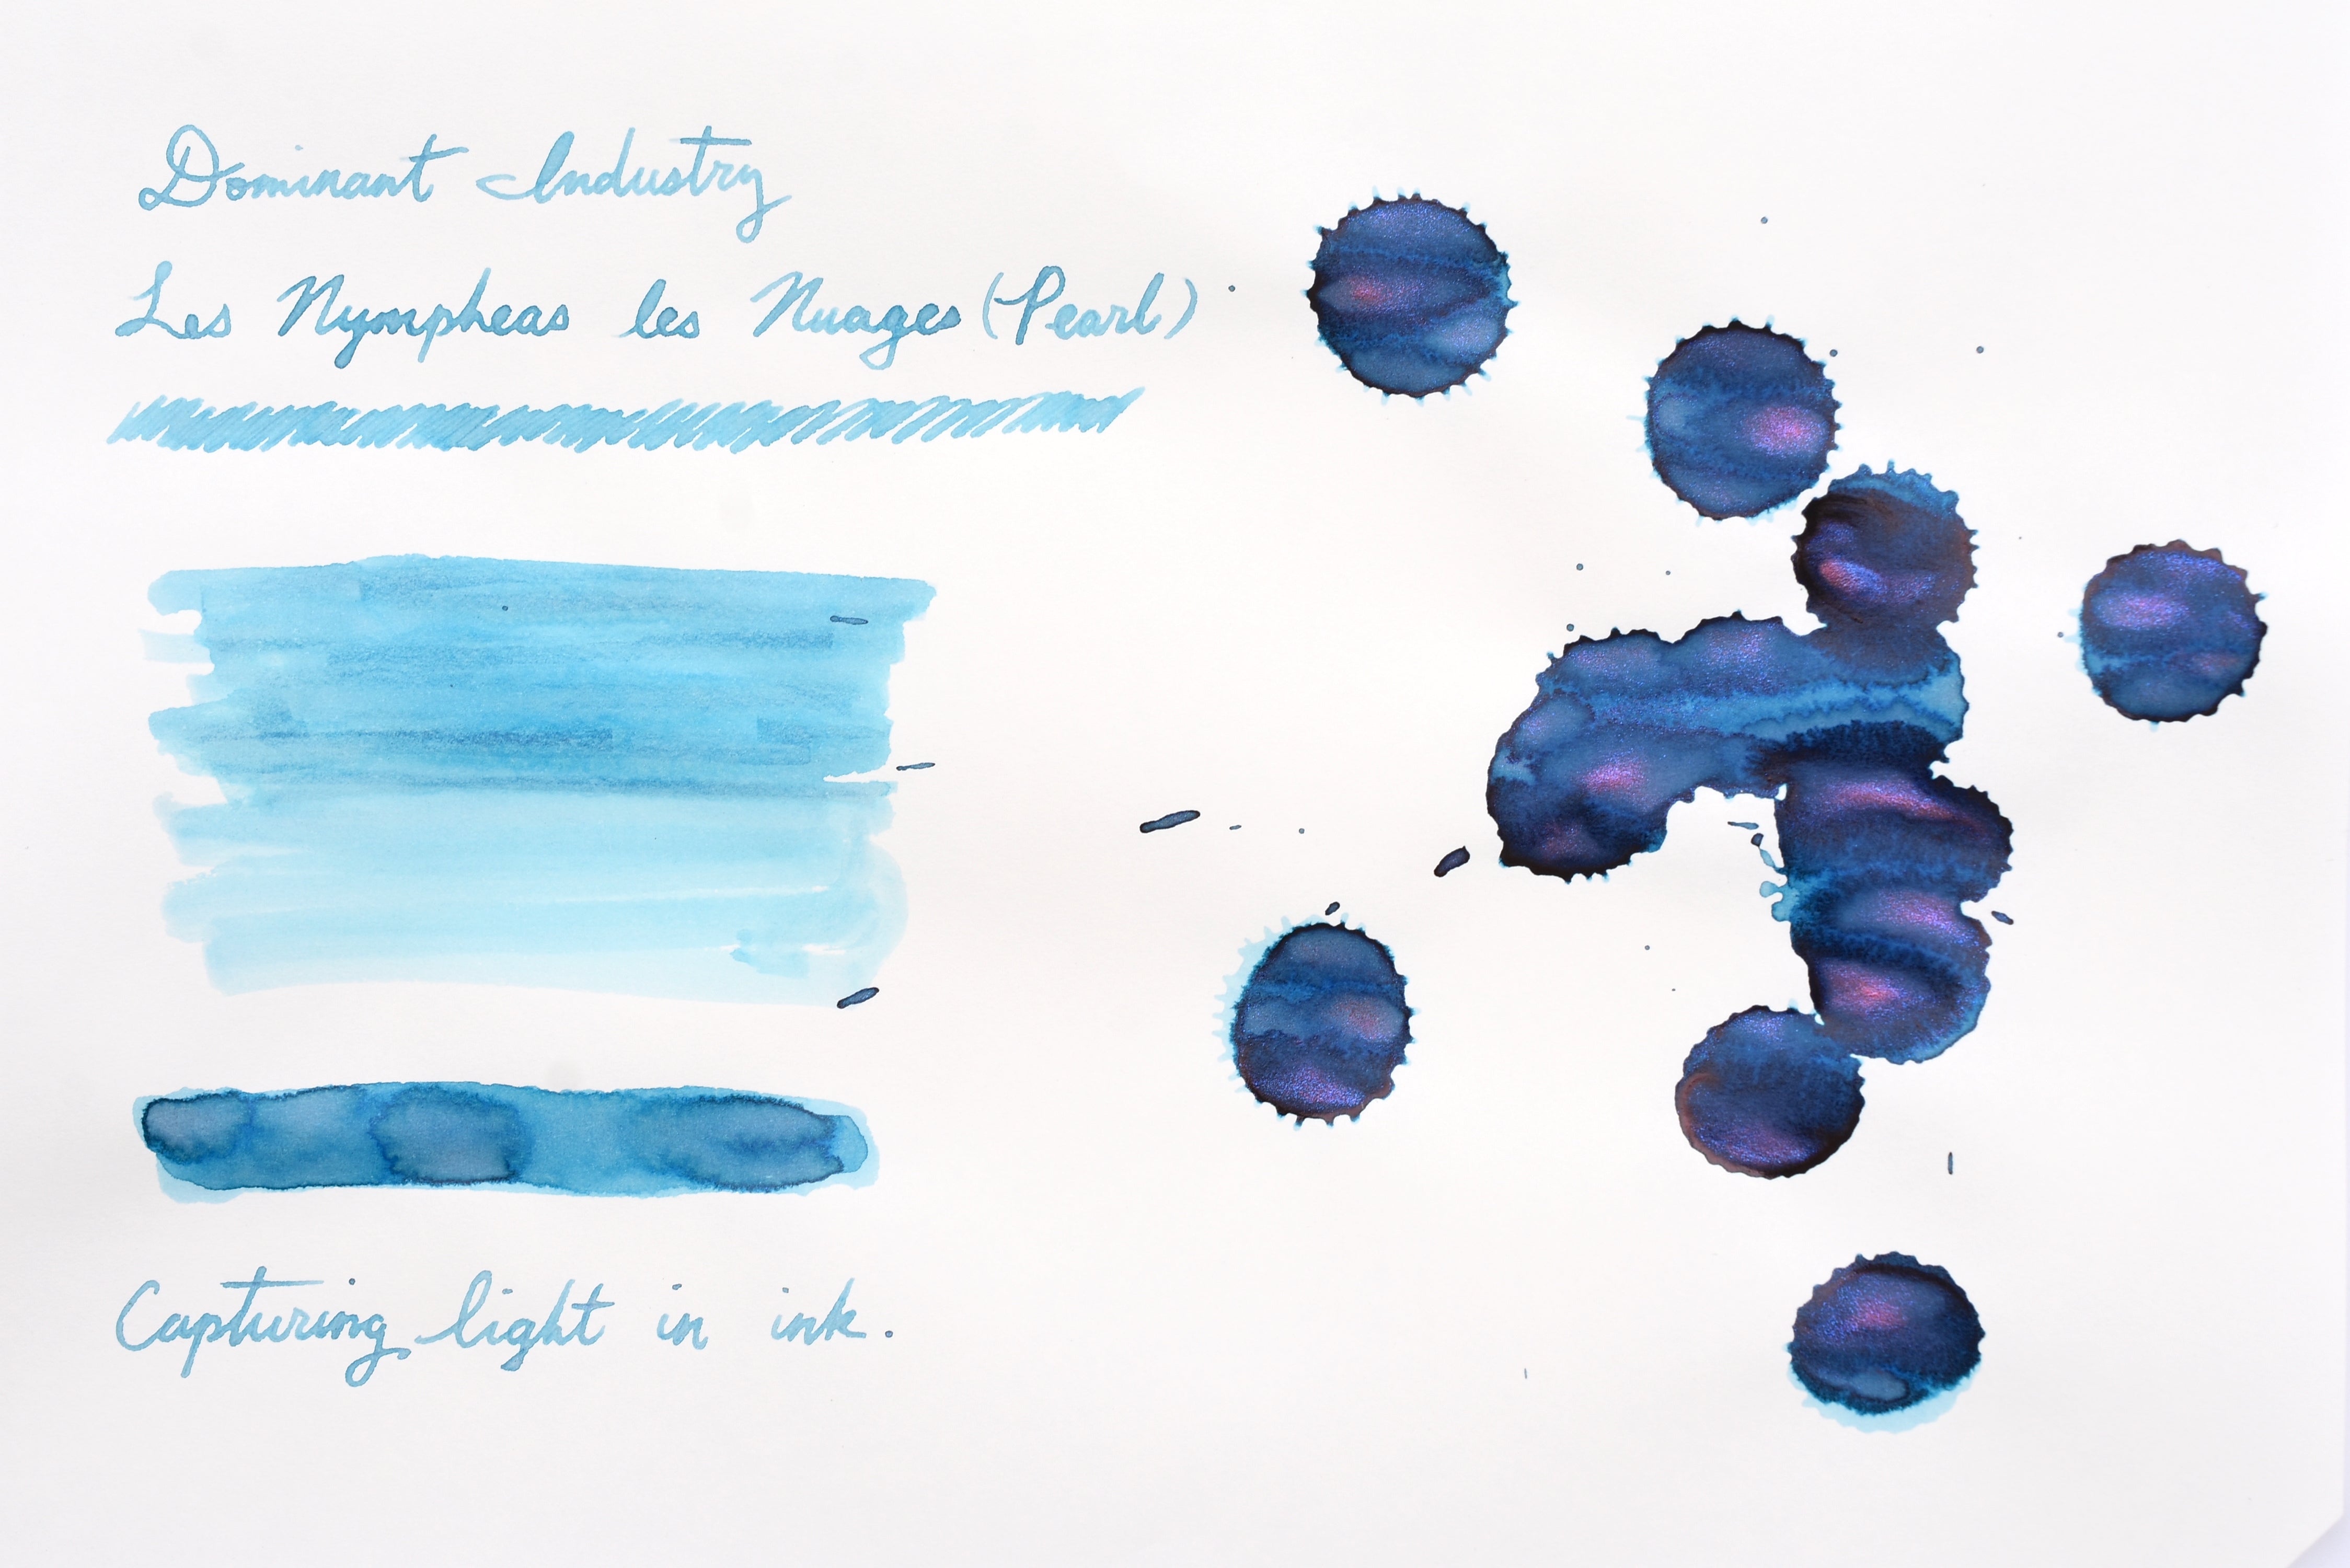 Dominant Industry
Les Nympheas les Nuages (Pearl)
Capturing light in ink.